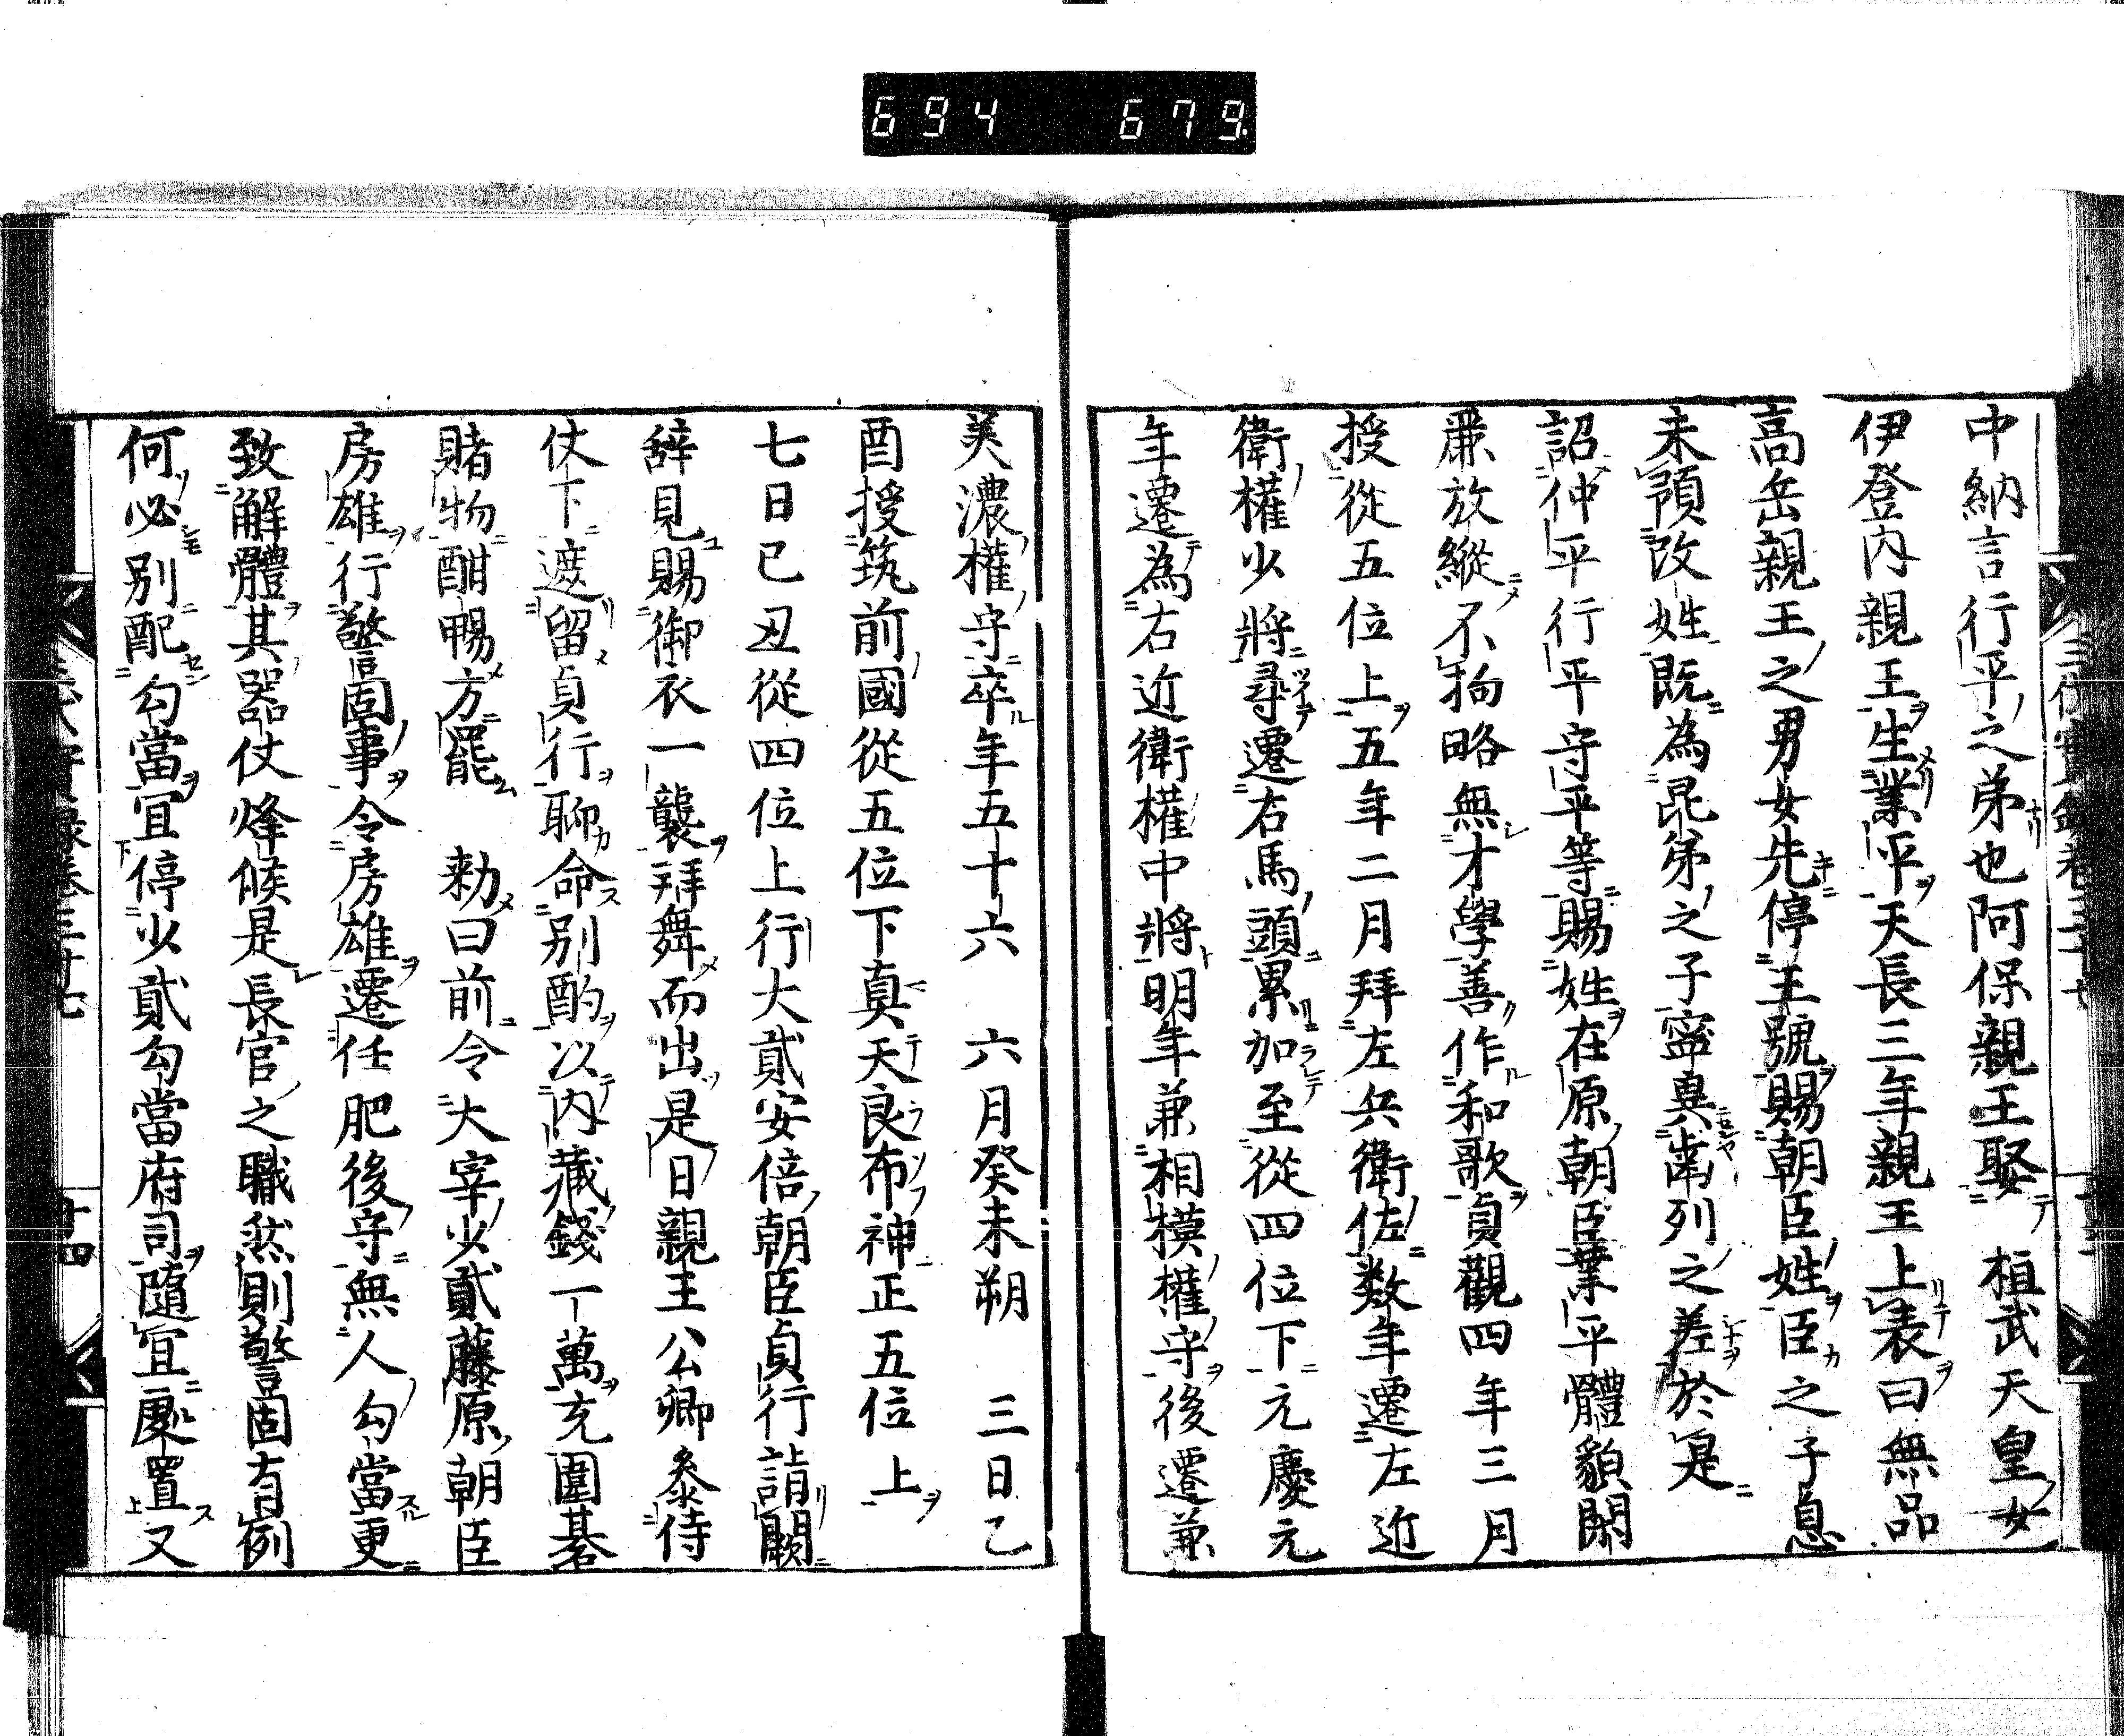 694 679
中納言行平之弟也阿保親王娶桓武天皇女
伊登内親王生業平天長三年親王上表曰無品
高岳親王之男女先停王號賜朝臣姓臣之子息
未預改姓既為昆弟之子寧異齒列之差於是
詔仲平行平守平等賜姓在原朝臣業平體貌閑
麗放縱不拘略無才學善作和歌貞觀四年三月
授從五位上五年二月拜左兵衛佐数年遷左近
衛權少將尋遷右馬頭累加至從四位下元慶元
年遷為右近衛權中將明年兼相模權守後遷兼
美濃權守卒年五十六 六月癸未朔 三日乙
酉授筑前國從五位下真天良布神正五位上
七日己丑從四位上行大貳安倍朝臣貞行詣闕
辞見賜御衣一襲拜舞而出是日親王公卿參侍
仗下遮留貞行聊命別酌以内藏錢一萬充圍碁
賭物酣暢方罷 勅曰前令大宰少貳藤原朝臣
房雄行警固事令房雄遷任肥後守無人勾當更
致解體其器仗烽候是長官之職然則警固有例
何必別配勾當宜停少貳勾當府司隨宜處置又